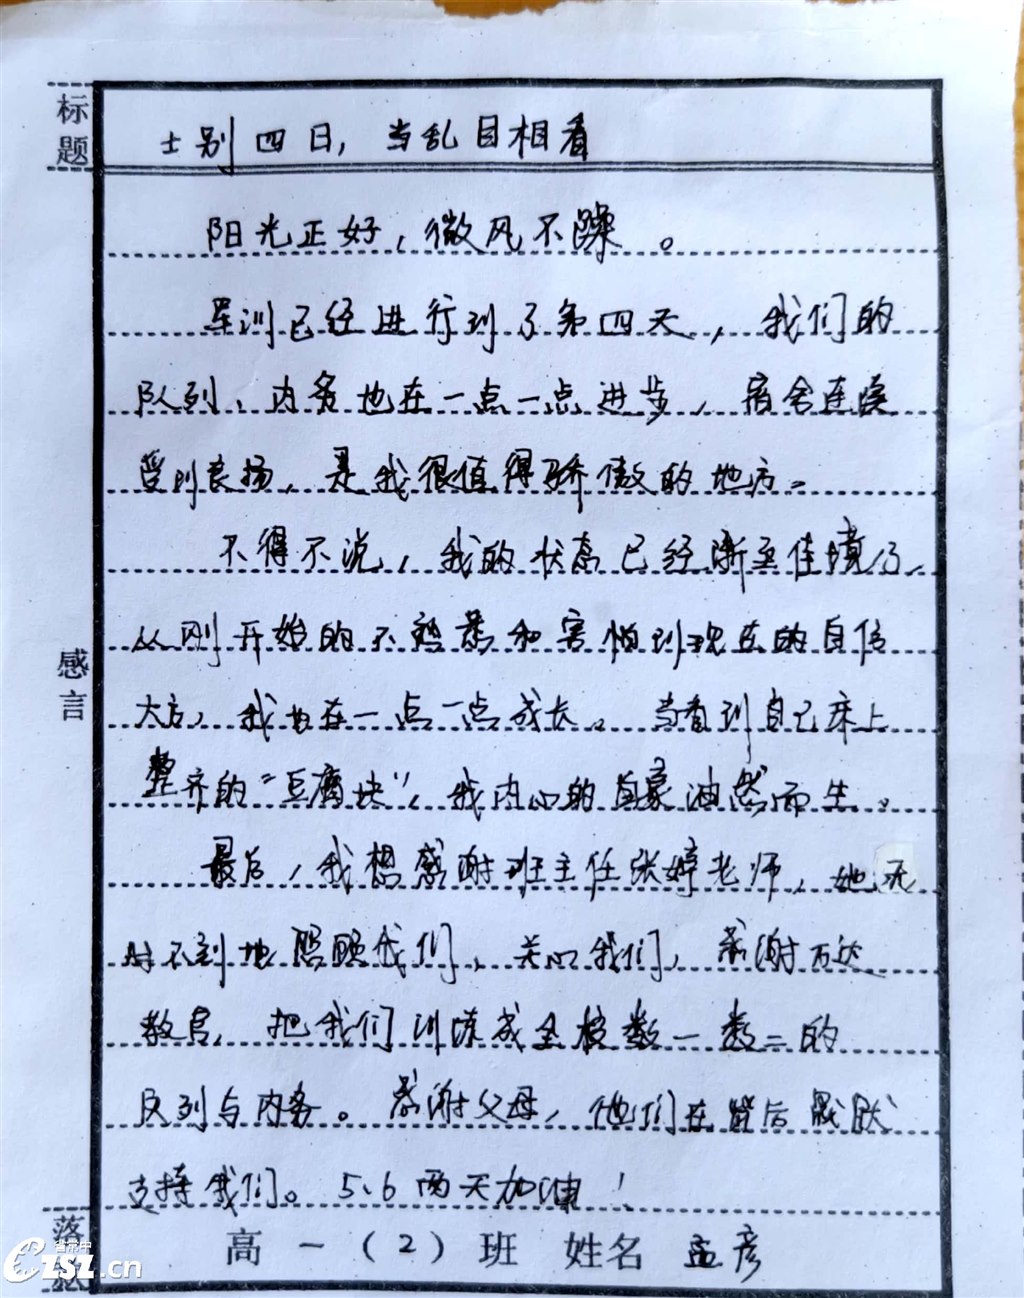 标题
士别四日，当乱目相看
阳光正好，微风不躁。
军训已经进行到了第四天，我们的
队列、内务也在一点一点进步，宿舍连续
受到表扬，是我很值得骄傲的地方。
不得不说，我的状态已经渐至佳境了，
从刚开始的不熟悉和害怕到现在的自信
大方，我也在一点一点成长。当看到自己床上
整齐的“豆腐块”，我内心的自豪油然而生。
最后，我想感谢班主任张婷老师，她无
时不刻地照顾我们，关心我们，感谢万达
教官，把我们训练成全校数一数二的
队列与内务。感谢父母，他们在背后默默
支持我们。5、6两天加油！
感言
落款
高一（2）班 姓名 孟彦
省常中
CZSZ.cn